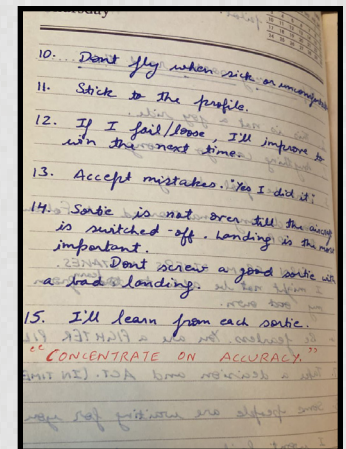 10. Dont fly when sick or uncomfortable
11. Stick to the profile.
12. If I fail/loose, I'll improve to
win the next time.
13. Accept mistakes. "Yes I did it"
14. Sortie is not over till the aircraft
is switched-off. Landing is the most
important.
Dont screw a good sortie with
a bad landing.
15. I'll learn from each sortie.
"CONCENTRATE ON ACCURACY."